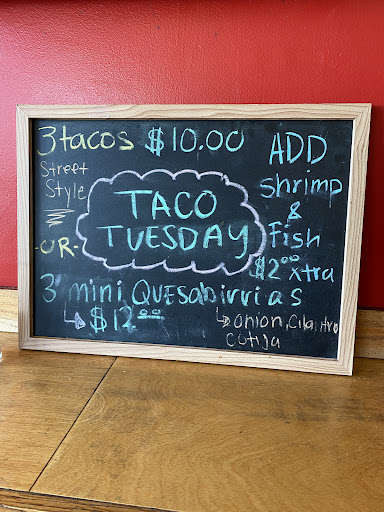 3 tacos $10.00
Street
Style
-OR-
TACO
TUESDAY
ADD
shrimp
&
Fish
$2.00 xtra
3 mini Quesabirrias
$12.00
onion, cilantro
cotija